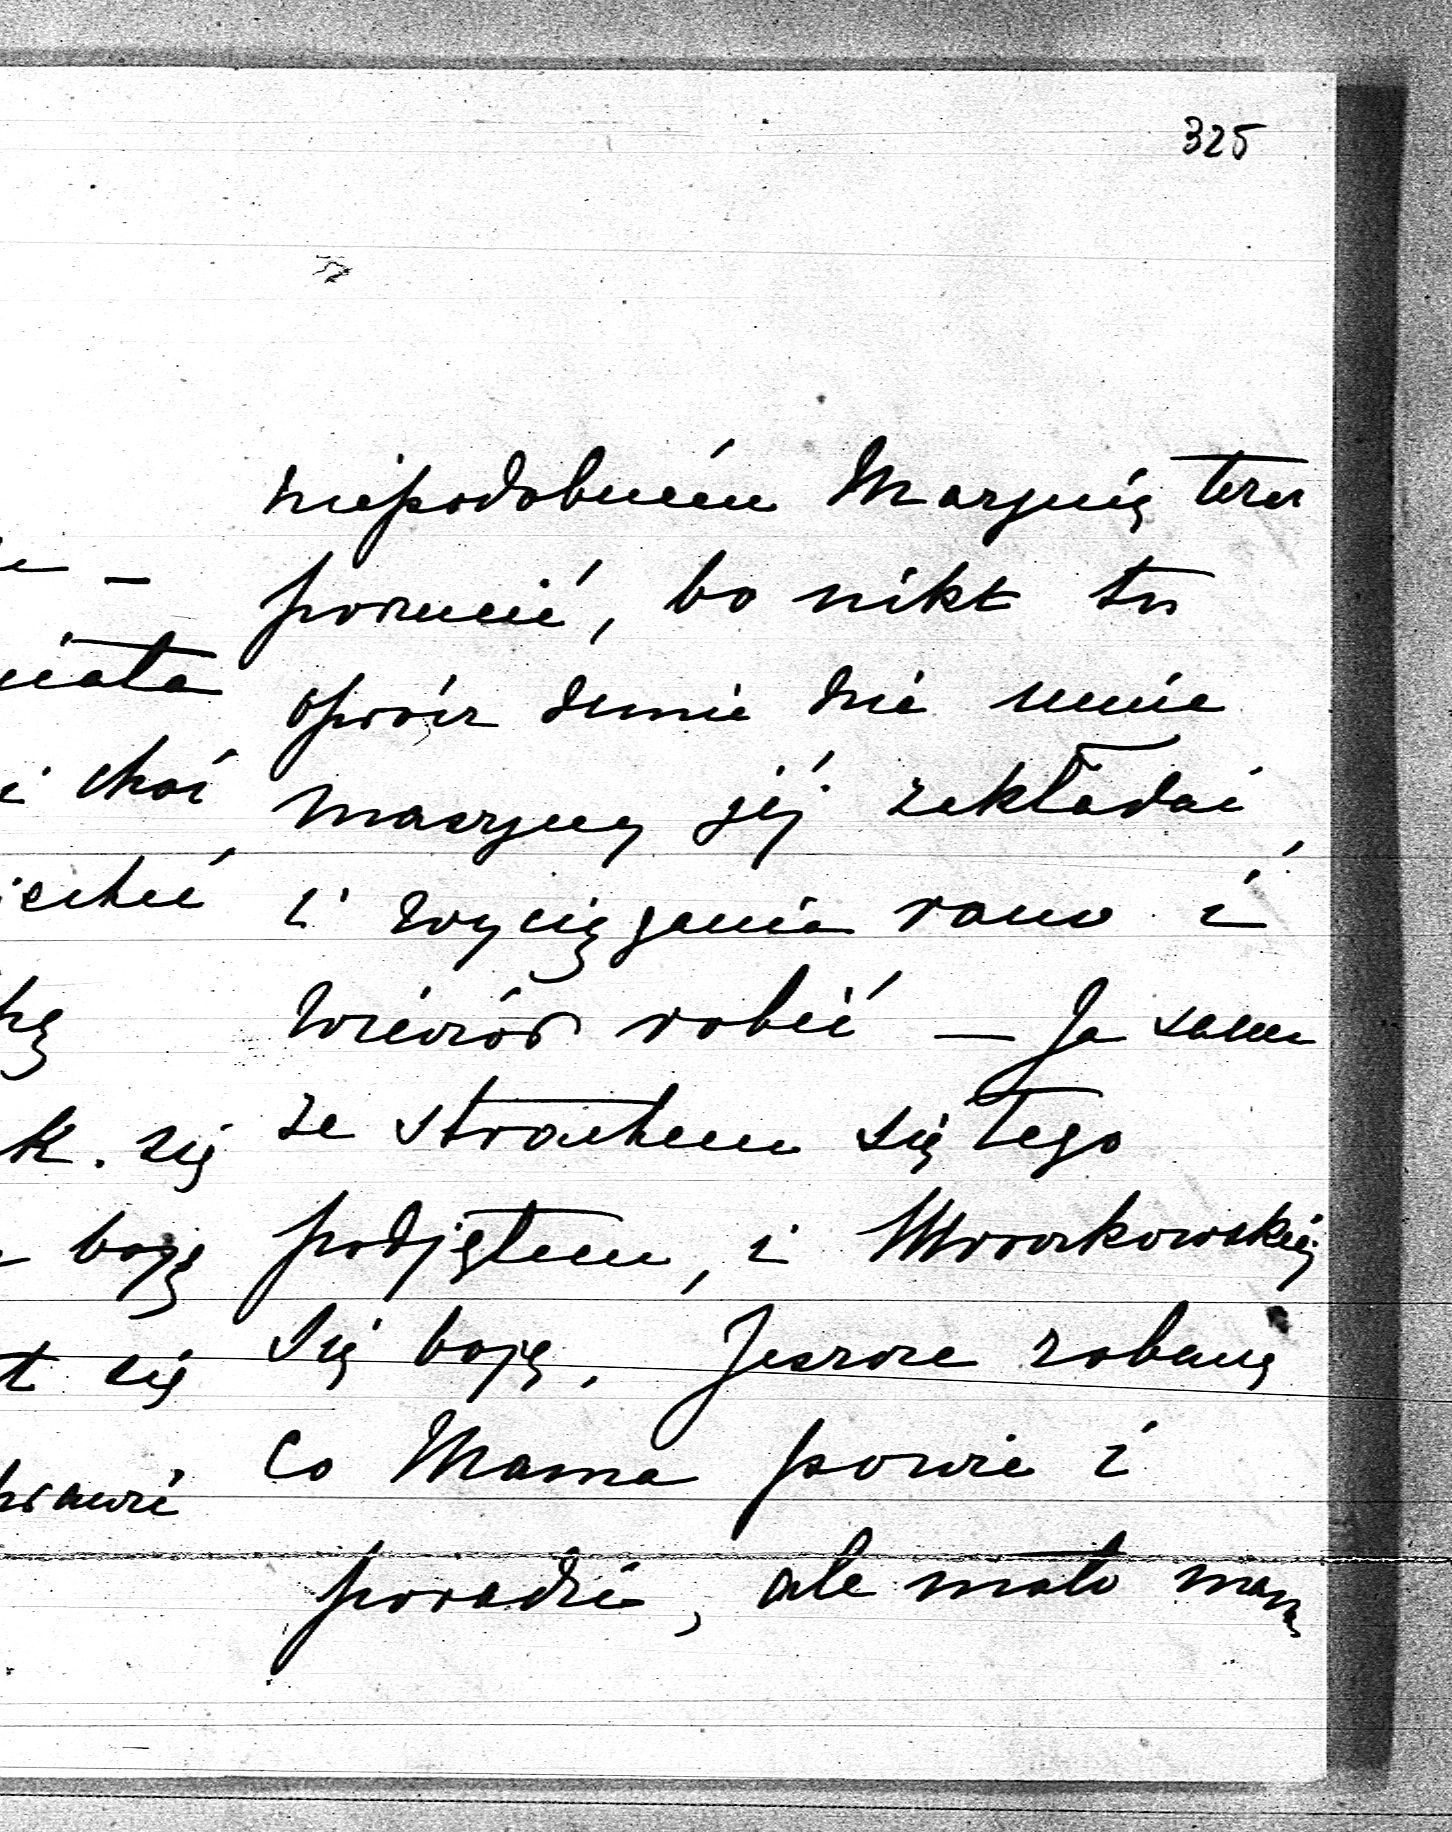 325
niepodobném Marynię teraz
porzucić, bo nikt tu
oprócz dumie nie umie
maszyny jéj zakładać
i wyciągania rano i
wieczór robić — Ja sam
ze strachem się tego
podjąłem, i Mroczkowskiéj
się boję. Jeszcze zobaczę
co Mama powie i
poradzi, ale mało mam
—
iała
i choć
chę
k. się
boję
t się
prawi